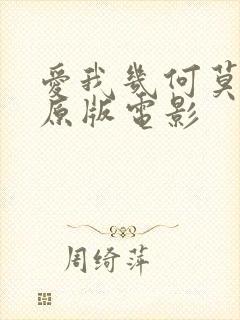 愛我幾何莫
原版電影
周绮萍